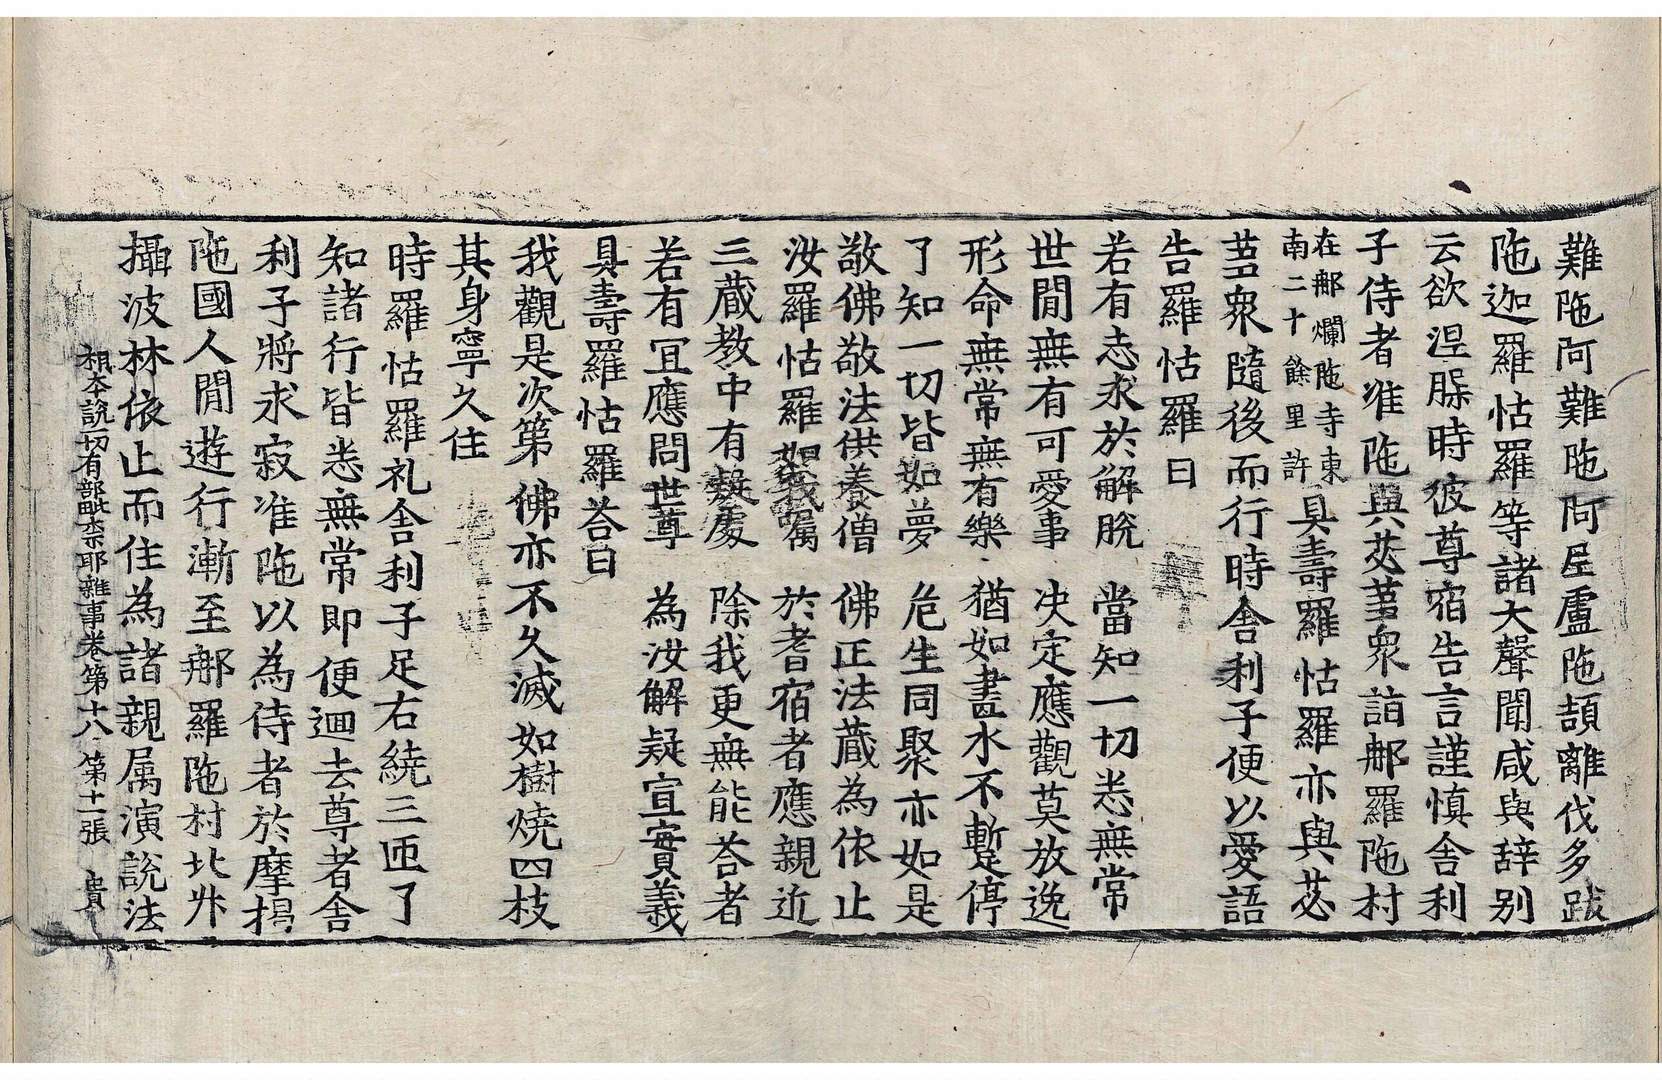 難陁阿難陁阿屋盧陁頡離伐多跋
陁迦羅怙羅等諸大聲聞咸與辞别
云欲涅脲時彼尊宿告言謹慎舍利
子侍者准陁與苾蒭衆詣郍羅陁村
在郍爛陁寺東
南二十餘里許
具壽羅怙羅亦與苾
蒭衆隨後而行時舍利子便以愛語
告羅怙羅曰
若有志求於解脫 當知一切悉無常
世間無有可愛事 决定應觀莫放逸
形命無常無有樂 猶如畫水不暫停
了知一切皆如夢 危生同聚亦如是
敬佛敬法供養僧 佛正法藏為依止
汝羅怙羅如我囑 於耆宿者應親近
三藏教中有疑處 除我更無能荅者
若有冝應問世尊 為汝解疑宣實義
具壽羅怙羅荅曰
我觀是次第 佛亦不久滅 如樹燒四枝
其身寧久住
時羅怙羅礼舍利子足右繞三匝了
知諸行皆悉無常即便迴去尊者舍
利子將求寂准陁以為侍者於摩揭
陁國人間遊行漸至郍羅陁村北升
攝波林依止而住為諸親属演說法
根本說一切有部毗柰耶雜事卷第十八 第十一張 貴